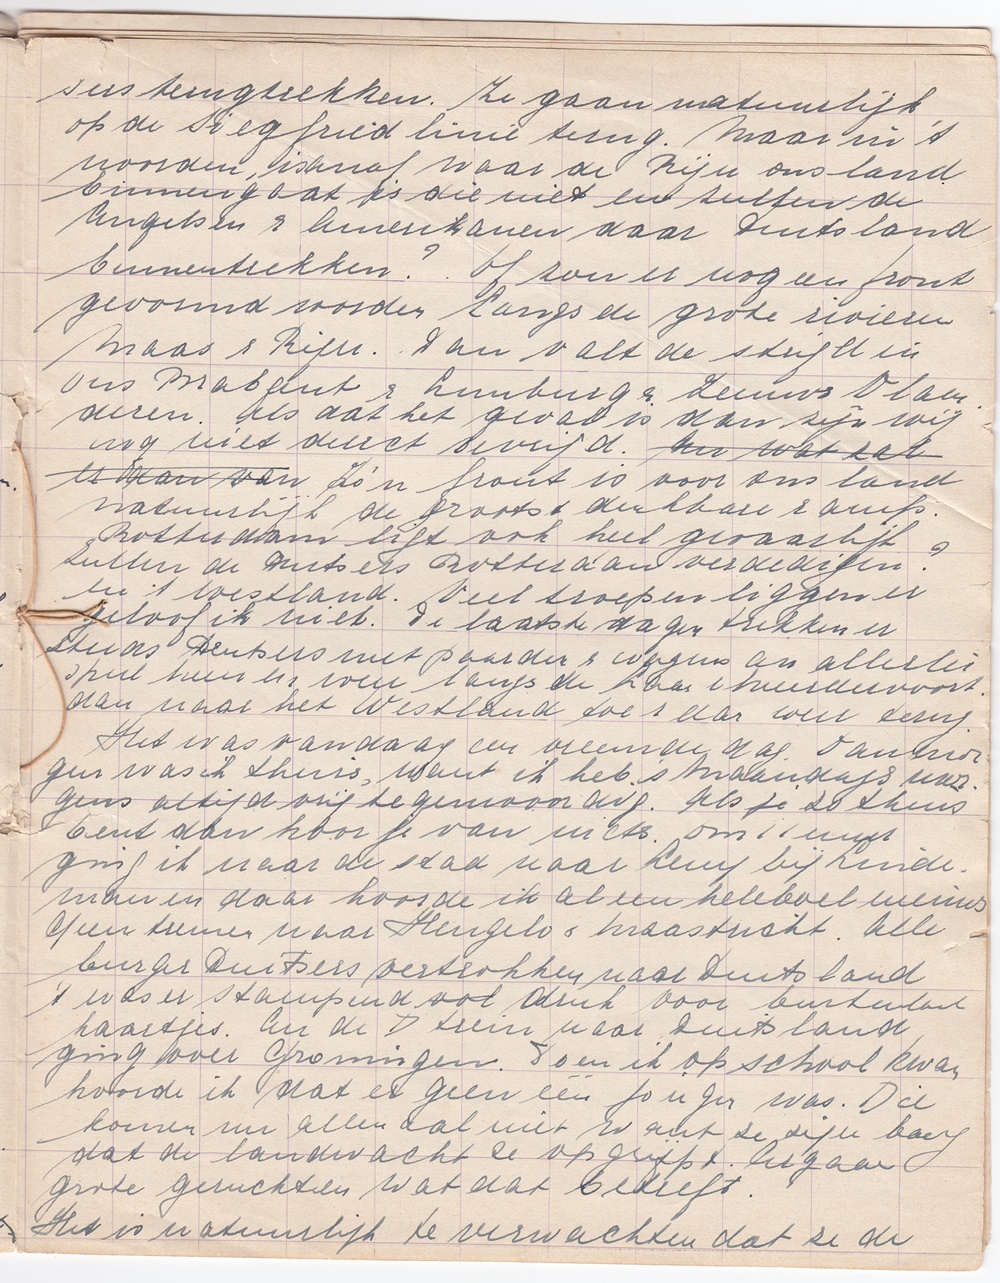 sers terugtrekken. Ze gaan natuurlijk
op de Siegfried linie terug. Maar in 't
noorden, vanaf waar de Rijn ons land
binnengaat is die niet en zullen de
Engelsen & Amerikanen daar Duitsland
binnentrekken? Of zou er nog een front
gevormd worden langs de grote rivieren
Maas & Rijn. Dan valt de strijd in
ons Brabant & Limburg & Zeeuws Vlaan-
deren. Als dat het geval is dan zijn wij
nog niet direct bevrijd. En wat zal
er dan van Zo'n front is voor ons land
natuurlijk de grootst denkbare ramp.
Rotterdam ligt ook heel gevaarlijk
Zullen de Duitsers Rotterdam verdedigen?
En 't Westland. Veel troepen liggen er
geloof ik niet. De laatste dagen trekken er
steeds Duitsers met paarden & wagens en allerlei
spul heen en weer langs de Laan v Meerdervoort.
dan naar het Westland toe & dan weer terug
Het was vandaag een vreemde dag. Vanmor-
gen was ik thuis, want ik heb 's Maandags mor-
gens altijd vrij tegenwoordig. Als je zo thuis
bent dan hoor je van niets. Om 11 uur
ging ik naar de stad naar Leny bij Linde-
man en daar hoorde ik al een heleboel nieuws
Geen treinen naar Hengelo & Maastricht. Alle
burger Duitsers vertrokken naar Duitsland
't was er stampend vol druk voor buitenland
kaartjes. En de D trein naar Duitsland
ging over Groningen. Toen ik op school kwam
hoorde ik dat er geen één jongen was. Die
komen nu allemaal niet want ze zijn bang
dat de landwacht ze opgrijpt. Er gaan
grote geruchten wat dat betreft.
Het is natuurlijk te verwachten dat ze de